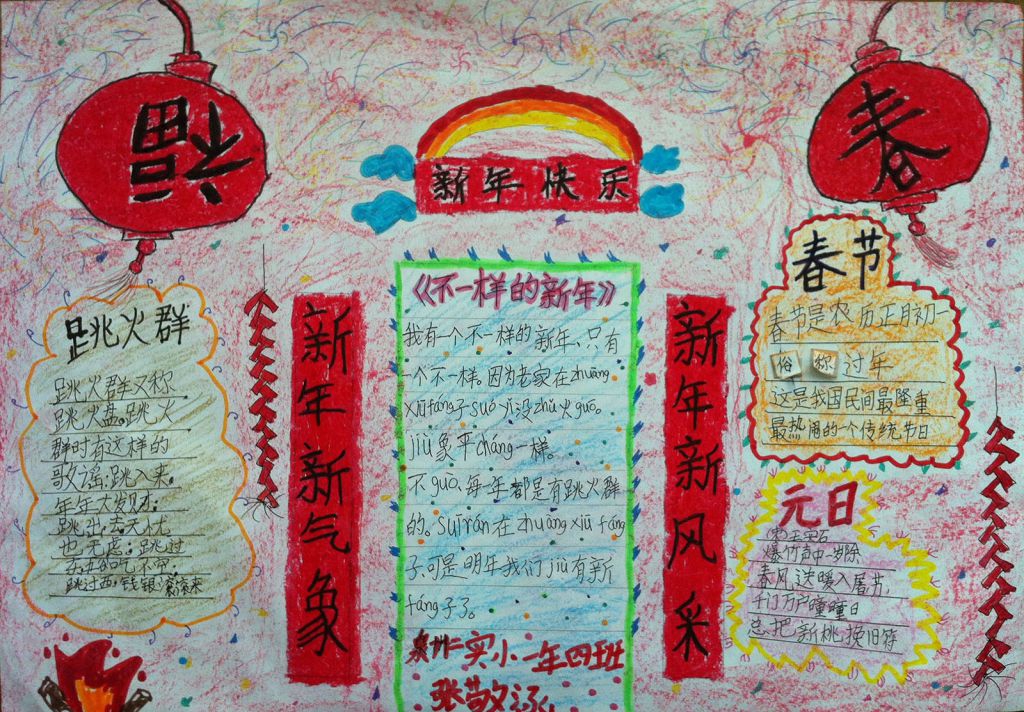 福
春
新年快乐
跳火群
跳火群又称
跳火盆。跳火
群时有这样的
歌谣:跳入来,
年年大发财;
跳出去,无忧
也无虑;跳过
东,五谷吃不空,
跳过西,钱银滚滚来
新年新气象
《不一样的新年》
我有一个不一样的新年、只有
一个不一样。因为老家在zhuāng
xiū fáng子suó yǐ没zhù火guō。
jiù象平cháng一样。
不guò、每一年都是有跳火群
的。suī rán在zhuang xiū fáng
子、可是明年我们jiù有新
fáng子了。
泉州二实小一年四班
张敬泳
新年新风采
春节
春节是农历正月初一
俗称过年
这是我国民间最隆重
最热闹的一个传统节日
元日
(宋)王安石
爆竹声中一岁除
春风送暖入屠苏,
千门万户曈曈日
总把新桃换旧符